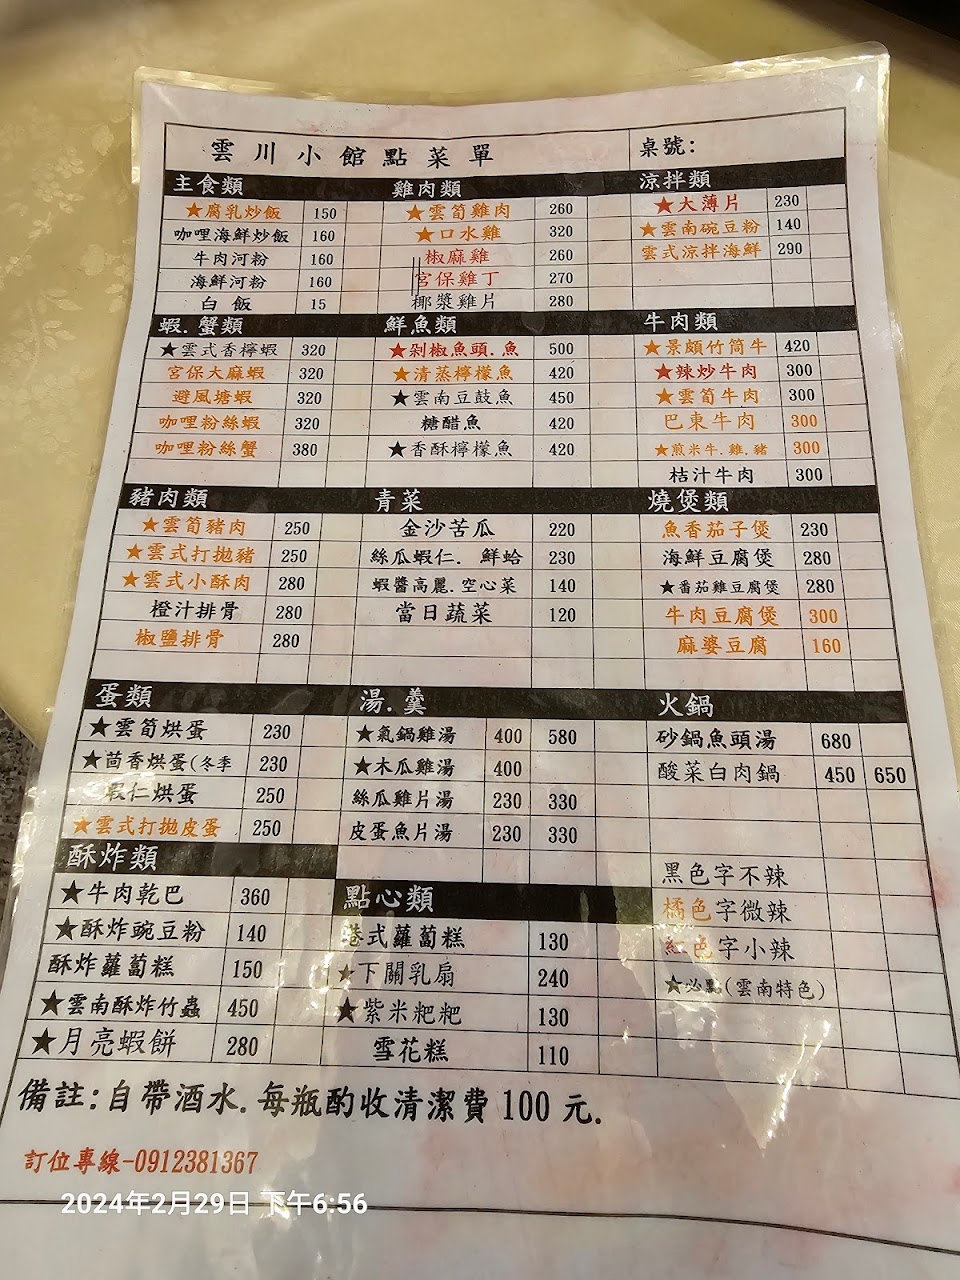 雲川小館點菜單 桌號:
主食類 雞肉類 涼拌類
★腐乳炒飯 150 ★雲筍雞肉 260 ★大薄片 230
咖哩海鮮炒飯 160 ★口水雞 320 ★雲南碗豆粉 140
牛肉河粉 160 椒麻雞 260 雲式涼拌海鮮 290
海鮮河粉 160 宮保雞丁 270
白飯 15 椰漿雞片 280
蝦.蟹類 鮮魚類 牛肉類
★雲式香檸蝦 320 ★剁椒魚頭.魚 500 ★景頗竹筒牛 420
宮保大麻蝦 320 ★清蒸檸檬魚 420 ★辣炒牛肉 300
避風塘蝦 320 ★雲南豆鼓魚 450 ★雲筍牛肉 300
咖哩粉絲蝦 320 糖醋魚 420 巴東牛肉 300
咖哩粉絲蟹 380 ★香酥檸檬魚 420 ★煎米牛.雞.豬 300
桔汁牛肉 300
豬肉類 青菜 燒煲類
★雲筍豬肉 250 金沙苦瓜 220 魚香茄子煲 230
★雲式打拋豬 250 絲瓜蝦仁.鮮蛤 230 海鮮豆腐煲 280
★雲式小酥肉 280 蝦醬高麗.空心菜 140 ★番茄雞豆腐煲 280
橙汁排骨 280 當日蔬菜 120 牛肉豆腐煲 300
椒鹽排骨 280 麻婆豆腐 160
蛋類 湯.羹 火鍋
★雲筍烘蛋 230 ★氣鍋雞湯 400 580 砂鍋魚頭湯 680
★茴香烘蛋(冬季 230 ★木瓜雞湯 400 酸菜白肉鍋 450 650
蝦仁烘蛋 250 絲瓜雞片湯 230 330
★雲式打拋皮蛋 250 皮蛋魚片湯 230 330
酥炸類
黑色字不辣
★牛肉乾巴 360 點心類 橘色字微辣
★酥炸豌豆粉 140 港式蘿蔔糕 130 紅色字小辣
酥炸蘿蔔糕 150 ★下關乳扇 240 ★必點(雲南特色)
★雲南酥炸竹蟲 450 ★紫米粑粑 130
★月亮蝦餅 280 雪花糕 110
備註:自帶酒水.每瓶酌收清潔費100元.
訂位專線-0912381367
2024年2月29日 下午6:56